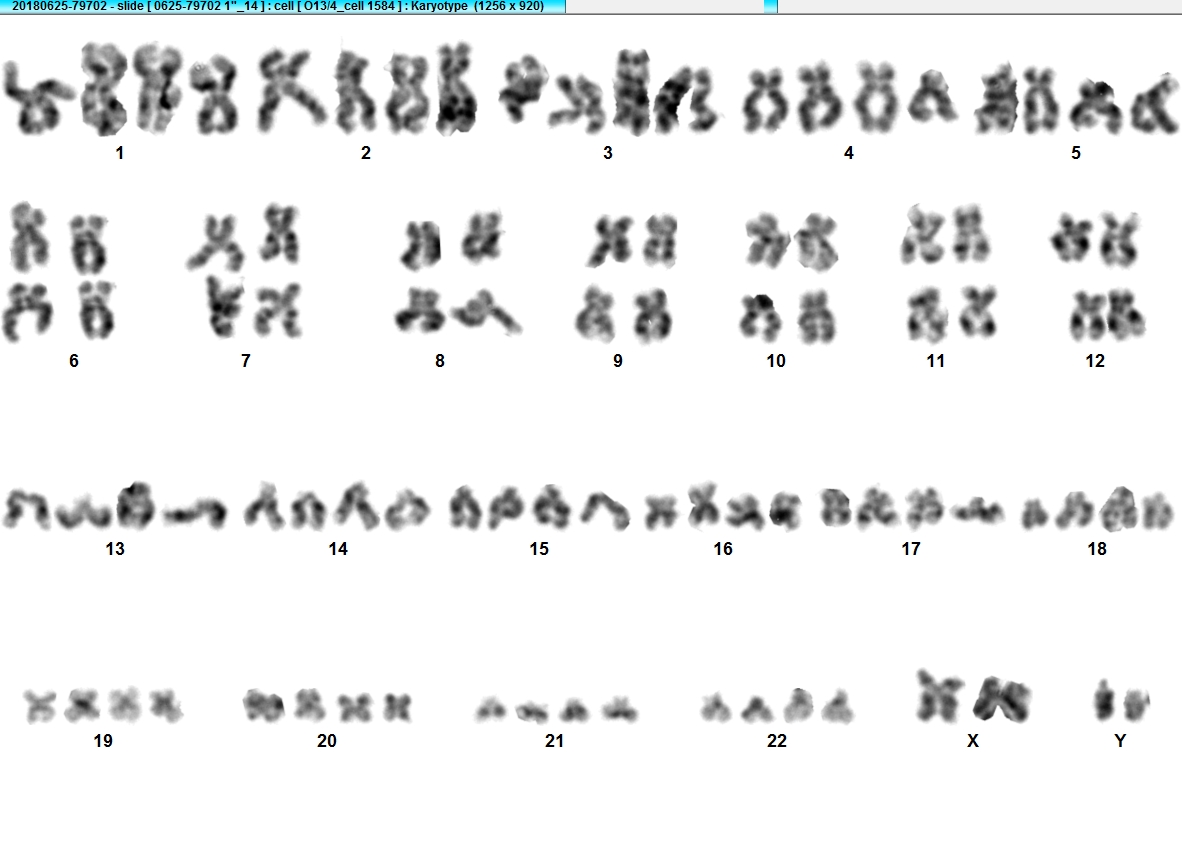 20180625-79702 - slide [ 0625-79702 1"_14 ] : cell [ O13/4_cell 1584 ] : Karyotype (1256 x 920)
1 2 3 4 5
6 7 8 9 10 11 12
13 14 15 16 17 18
19 20 21 22 X Y